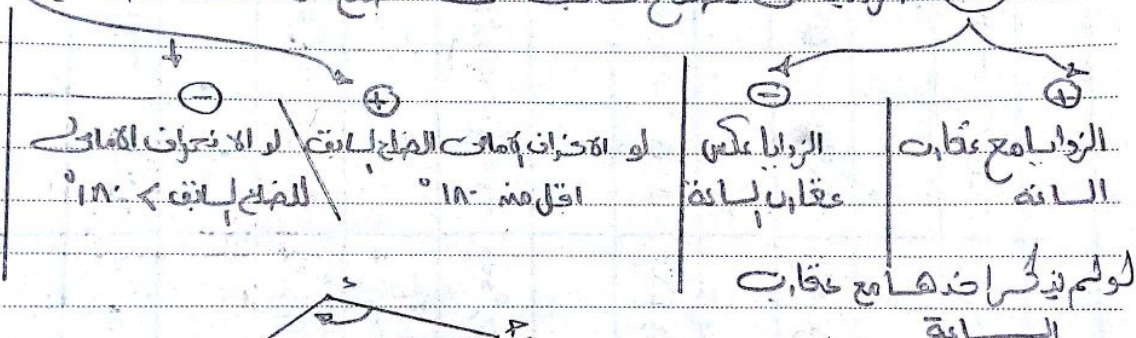 ⊕
الزوايا مع عقارب
الساعة
⊖
الزوايا عكس
عقارب الساعة
⊕
لو الانحراف الأمامى الضلع السابق
اقل من ١٨٠°
⊖
لو الانحراف الأمامى
للضلع السابق > ١٨٠°
لو لم يذكر اخدها مع عقارب
الساعة